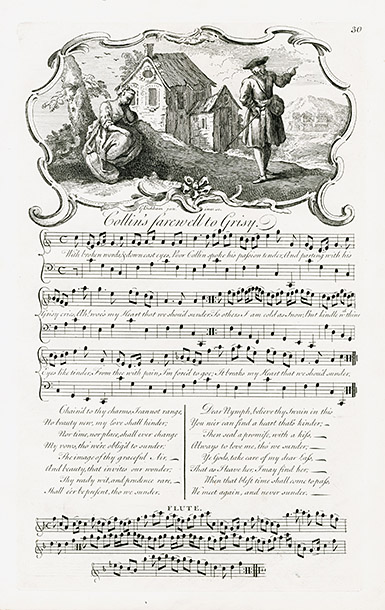 30
Collin's farewell to Grisy.
With broken words, & down cast eyes, Poor Collin spoke his passion tender, And parting with his
Grisy cries, Ah! woe's my Heart that we should sunder. To others I am cold as Snow, But kindle with thine
Eyes like tinder, From thee with pain, I'm forc'd to go; It breaks my Heart that we should sunder.
Chain'd to thy charms I cannot range,
No beauty new, my love shall hinder;
Nor time, nor place, shall ever change
My vows, tho' we're oblig'd to sunder.
The image of thy graceful Air,
And beauty, that invites our wonder;
Thy ready wit, and prudence rare,
Shall e'er be present, tho' we sunder.
Dear Nymph, believe thy Swain in this
You ne'er can find a heart thats kinder;
Then seal a promise, with a kiss,
Always to love me, tho' we sunder.
Ye Gods, take care of my dear Lass,
That as I leave her, I may find her;
When that blest time shall come to pass,
We meet again, and never sunder.
FLUTE.